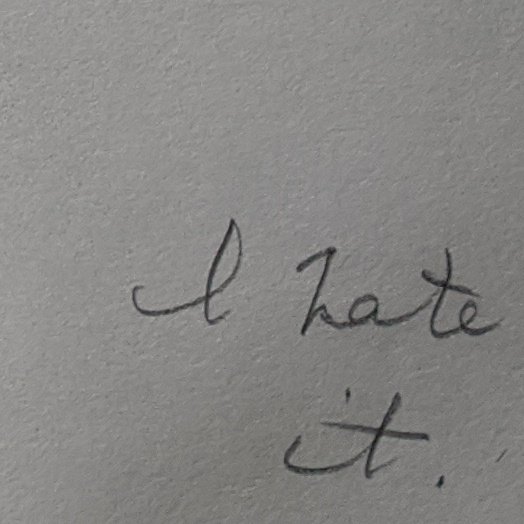 I hate
it.